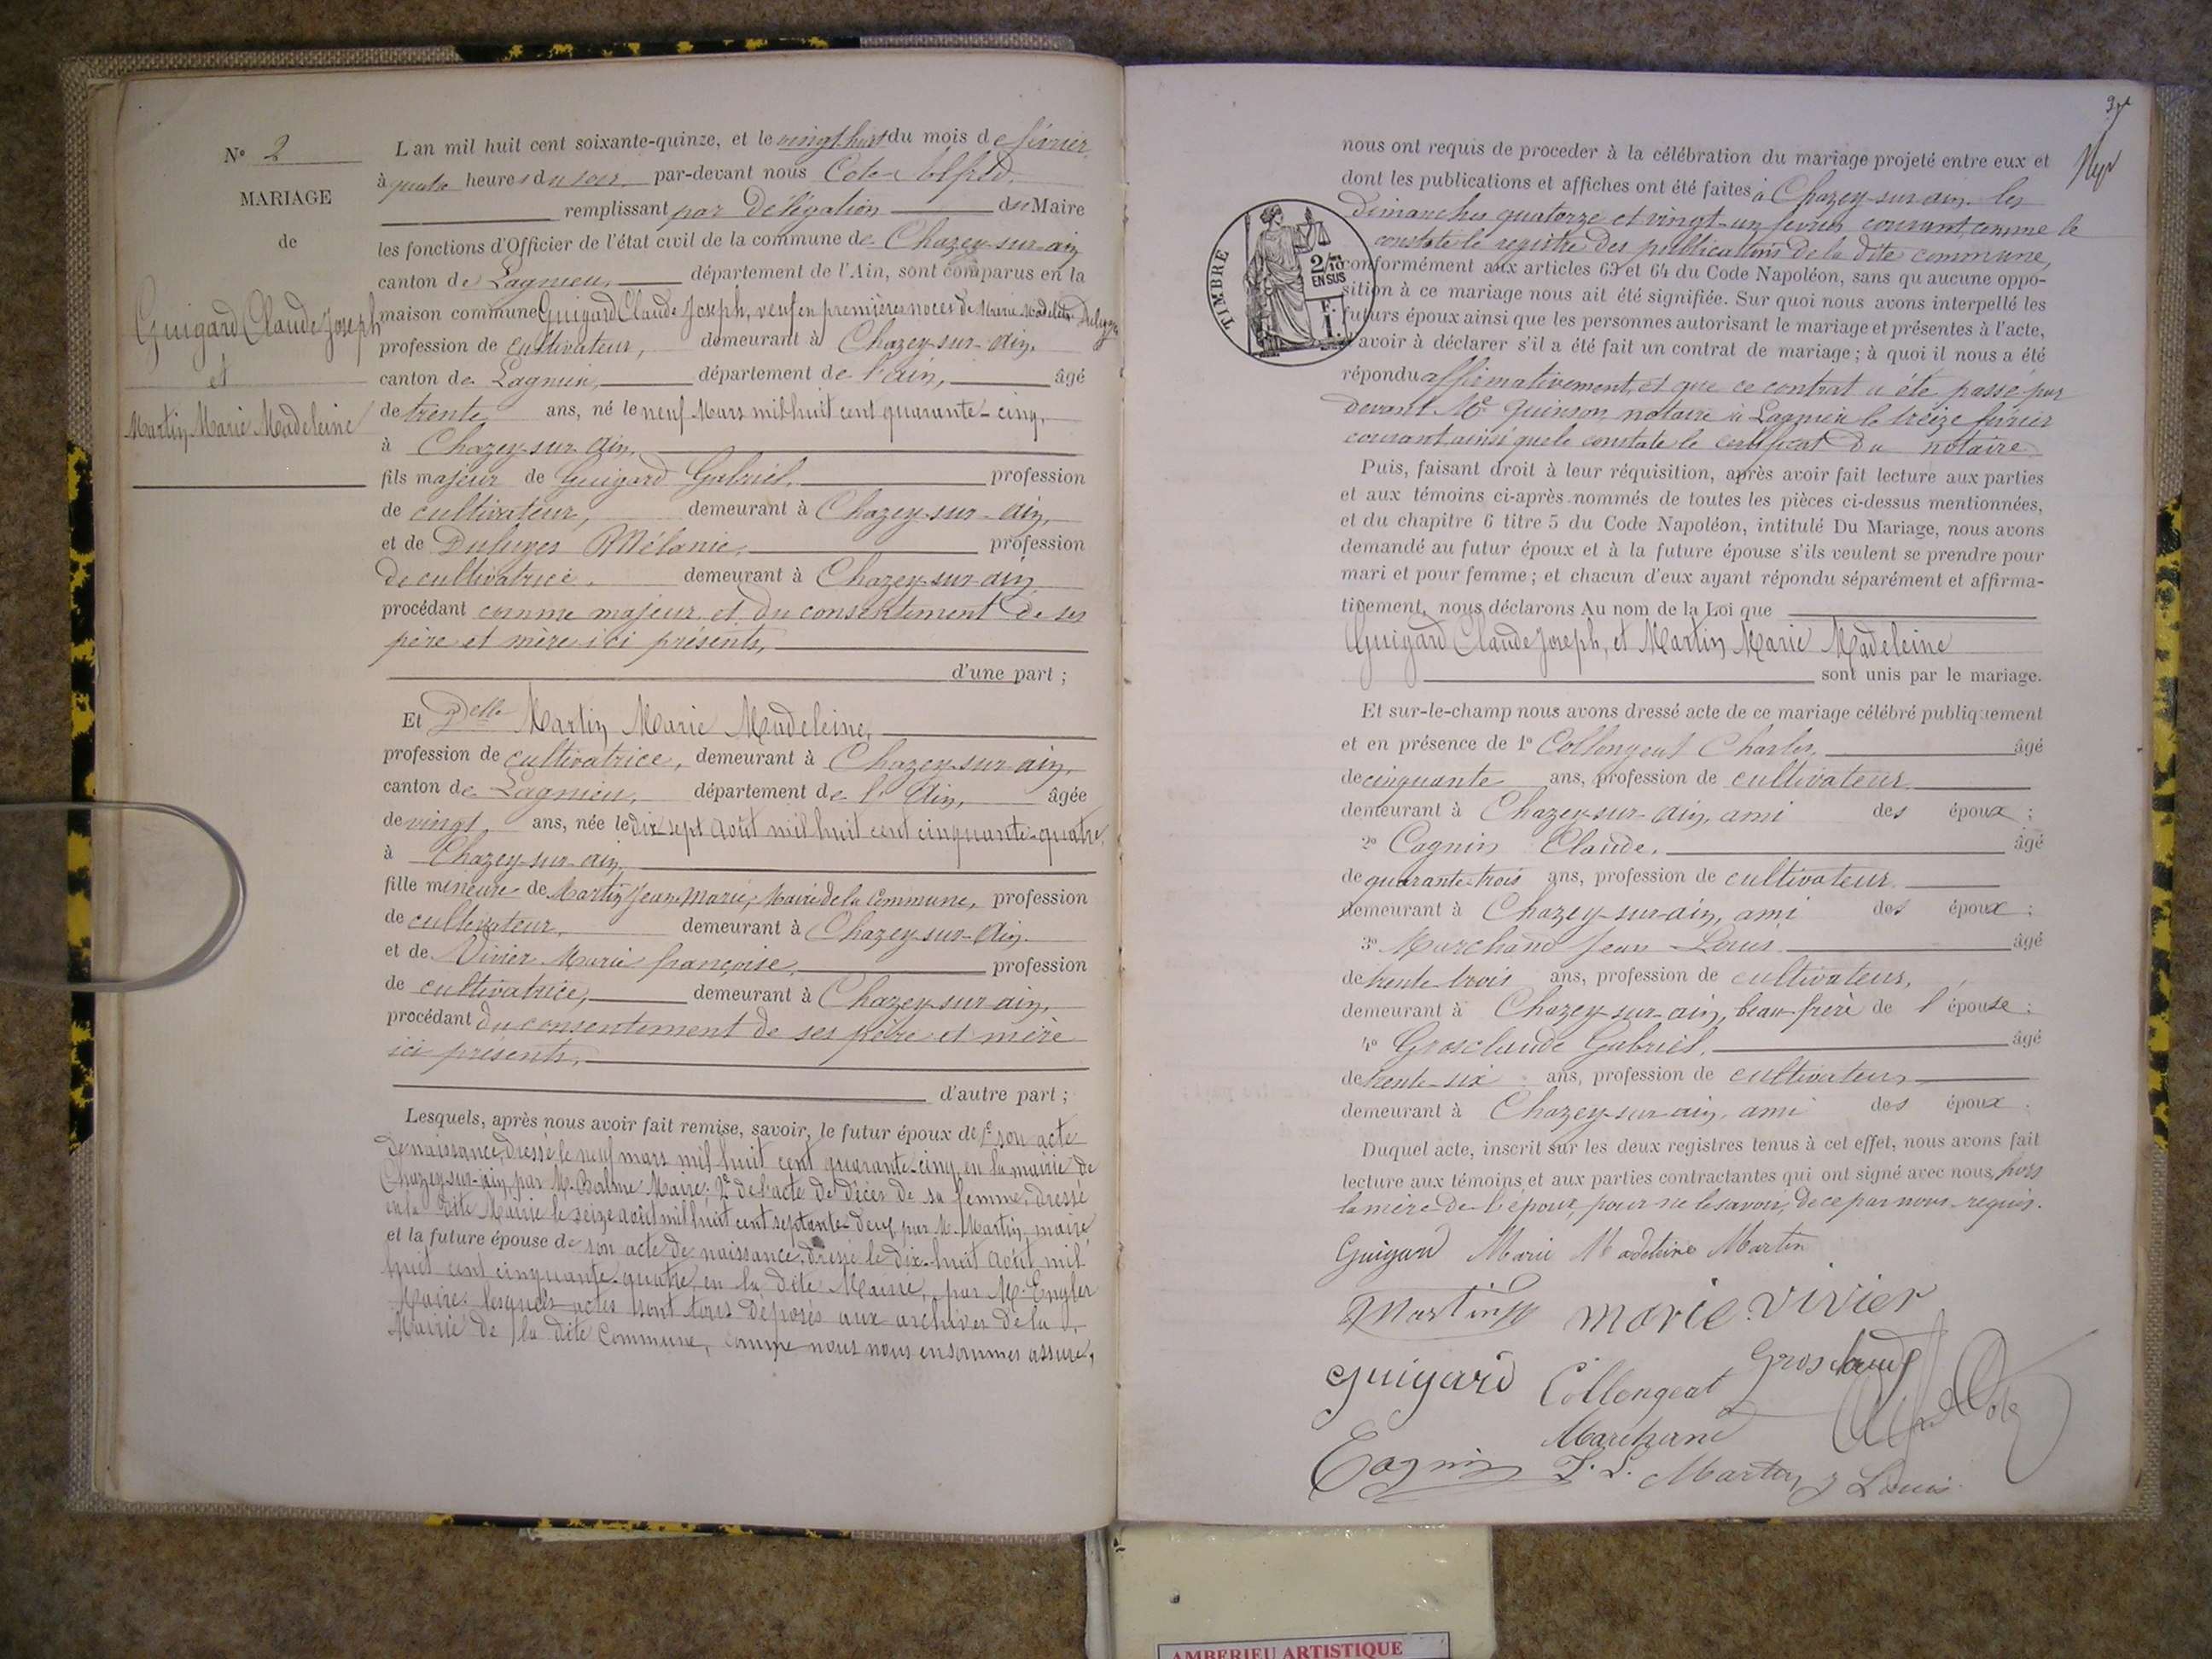 N° 2
MARIAGE
de
Guigard Claude Joseph
et
Martin Marie Madeleine
L'an mil huit cent soixante-quinze, et le vingt huit du mois de février
à quatre heures du soir par-devant nous Cote Alfred
remplissant par délégation du Maire
les fonctions d'Officier de l'état civil de la commune de Chazey-sur-ain
canton de Lagnieu, département de l'Ain, sont comparus en la
maison commune Guigard Claude Joseph, veuf en premières noces de Marie Madeleine
profession de cultivateur, demeurant à Chazey-sur-Ain,
canton de Lagnieu, département de l'ain, âgé
de trente ans, né le neuf Mars mil huit cent quarante-cinq,
à Chazey-sur-Ain,
fils majeur de Guigard Gabriel, profession
de cultivateur, demeurant à Chazey-sur-Ain,
et de Mélanie, profession
de cultivatrice, demeurant à Chazey-sur-ain
procédant comme majeur et du consentement de ses
père et mère ici présents,
d'une part ;
Et Delle Martin Marie Madeleine,
profession de cultivatrice, demeurant à Chazey-sur-ain,
canton de Lagnieu, département de l'Ain, âgée
de vingt ans, née le dix sept Août mil huit cent cinquante-quatre,
à Chazey-sur-ain,
fille mineure de Martin Jean Marie, Maire de la Commune, profession
de cultivateur, demeurant à Chazey-sur-Ain.
et de Vivier Marie françoise, profession
de cultivatrice, demeurant à Chazey-sur-ain,
procédant du consentement de ses père et mère
ici présents,
d'autre part ;
Lesquels, après nous avoir fait remise, savoir, le futur époux de 1° son acte
de naissance, dressé le neuf mars mil huit cent quarante-cinq en la mairie de
Chazey-sur-ain, par M. Balme Maire; 2° de l'acte de décès de sa femme, dressé
en la dite Mairie le seize août mil huit cent septante-deux par M. Martin, maire
et la future épouse de son acte de naissance, dressé le dix-huit Août mil
huit cent cinquante-quatre en la dite Mairie, par M. Engler
Maire. lesquels actes sont tous déposés aux archives de la
Mairie de la dite Commune, comme nous nous en sommes assuré,
nous ont requis de proceder à la célébration du mariage projeté entre eux et
dont les publications et affiches ont été faites à Chazey-sur-ain les
dimanches quatorze et vingt-un février courant comme le
constate le registre des publications de la dite commune,
conformément aux articles 63 et 64 du Code Napoléon, sans qu'aucune oppo-
sition à ce mariage nous ait été signifiée. Sur quoi nous avons interpellé les
futurs époux ainsi que les personnes autorisant le mariage et présentes à l'acte,
avoir à déclarer s'il a été fait un contrat de mariage ; à quoi il nous a été
répondu affirmativement, et que ce contrat a été passé par
devant Me Quinson, notaire à Lagnieu le treize février
courant, ainsi que le constate le certificat du notaire
TIMBRE
2/10
EN SUS
F.
1.
Puis, faisant droit à leur réquisition, après avoir fait lecture aux parties
et aux témoins ci-après nommés de toutes les pièces ci-dessus mentionnées,
et du chapitre 6 titre 5 du Code Napoléon, intitulé Du Mariage, nous avons
demandé au futur époux et à la future épouse s'ils veulent se prendre pour
mari et pour femme ; et chacun d'eux ayant répondu séparément et affirma-
tivement, nous déclarons Au nom de la Loi que
Guigard Claude Joseph, et Martin Marie Madeleine
sont unis par le mariage.
Et sur-le-champ nous avons dressé acte de ce mariage célébré publiquement
et en présence de 1° Collongeat Charles, âgé
de cinquante ans, profession de cultivateur
demeurant à Chazey-sur-Ain, ami des époux ;
2° Cagnin Claude, âgé
de quarante-trois ans, profession de cultivateur
demeurant à Chazey-sur-ain, ami des époux ;
3° Marchand Jean Louis âgé
de trente-trois ans, profession de cultivateur,
demeurant à Chazey-sur-ain, beau-frère de l'épouse ;
4° Grosclaude Gabriel, âgé
de trente-six ans, profession de cultivateur
demeurant à Chazey-sur-ain, ami des époux.
Duquel acte, inscrit sur les deux registres tenus à cet effet, nous avons fait
lecture aux témoins et aux parties contractantes qui ont signé avec nous, hors
la mère de l'époux, pour ne le savoir, de ce par nous requis.
Guigard Marie Madeleine Martin
Martin marie vivier
guigard Collongeat Grosclaude
Marchand Alfred Cote
Cagnin J. L. Martin J Louis
AMBERIEU ARTISTIQUE